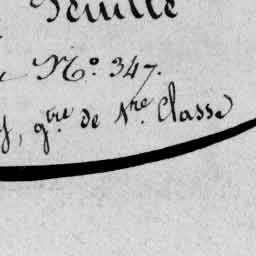 Feuille
N.º 347.
, g.re de 1.re Classe